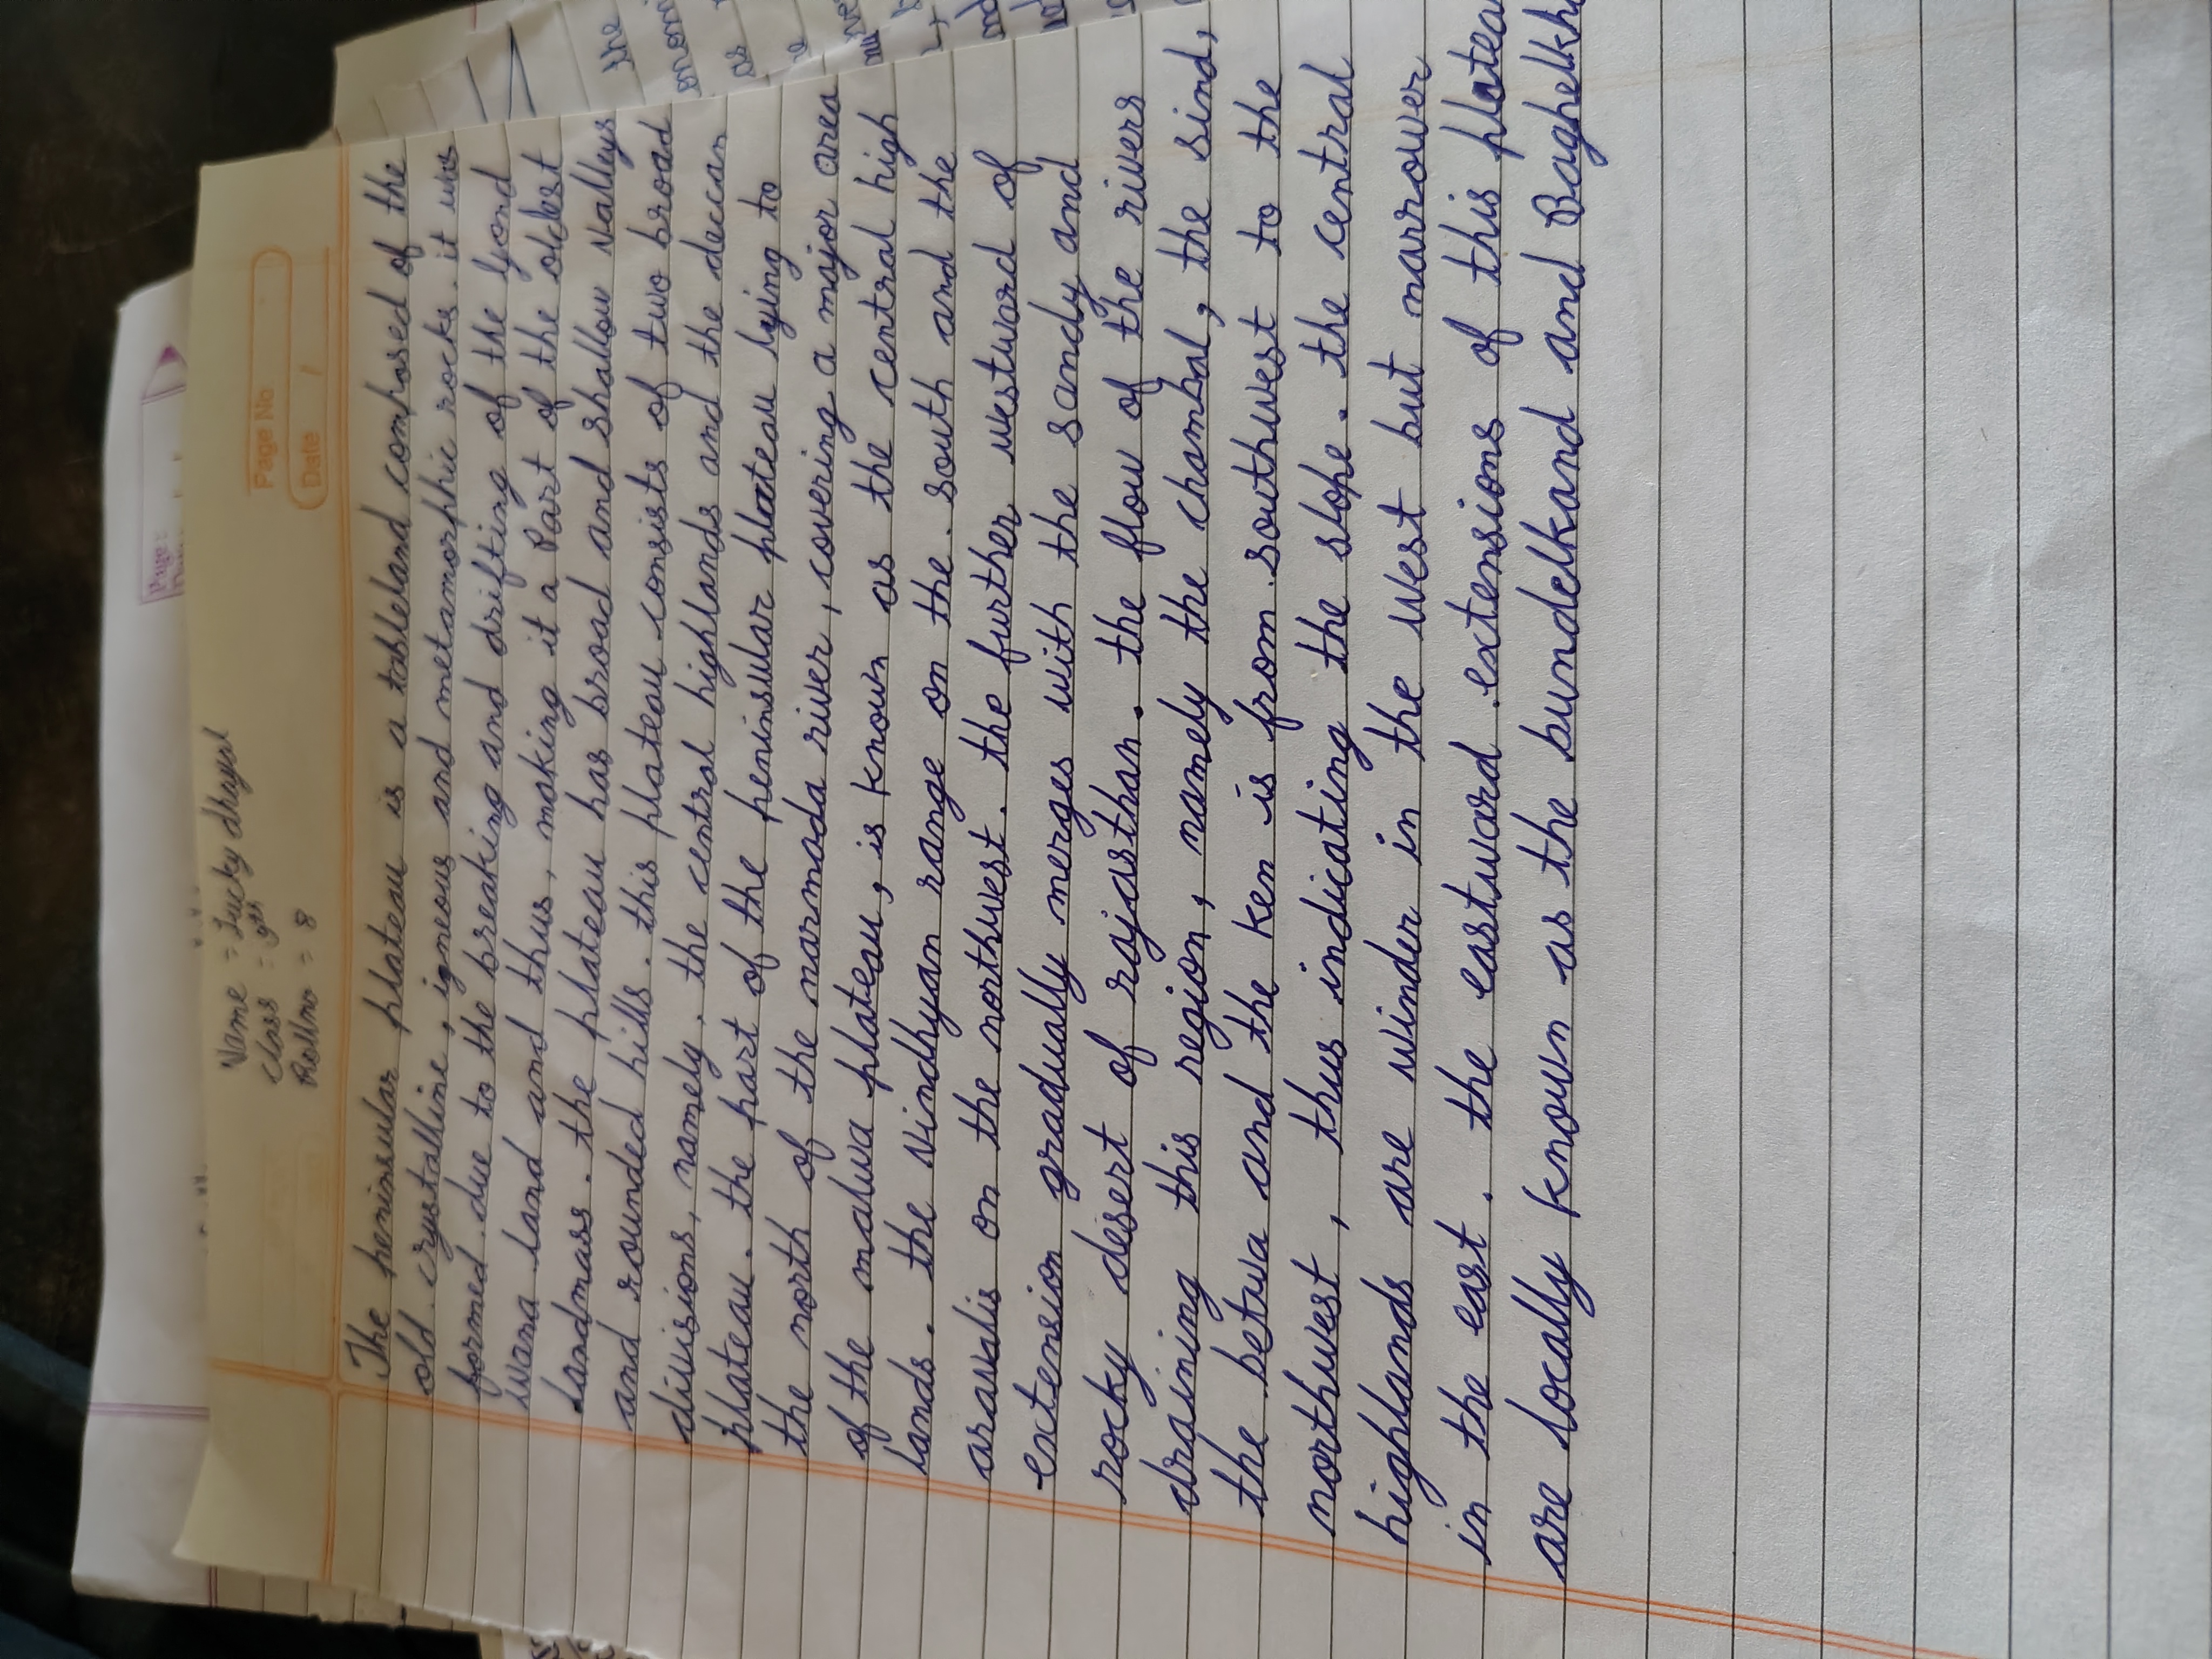 Page No
Date
Name = Lucky
Class = 9th
Rollno = 8
The peninsular plateau is a tableland composed of the
old. crystalline, igneous and metamorphic rocks. it was
formed. due to the breaking and drifting of the Gond
wana land and thus, making it a Part of the oldest
landmass. the plateau has broad and shallow valleys
and rounded hills. this plateau consists of two broad
divisions, namely. the central highlands and the deccan
plateau. the part of the peninsular plateau lying to
the north of the narmada river, covering a major area
of the malwa plateau, is known as the central high
lands. the vindhyan range on the. south and the
aravalis on the northwest. the further westward of
extension gradually merges with the sandy and
rocky desert of rajasthan. the flow of the rivers
draining this region, namely the chambal, the sind,
the betwa and the ken is from southwest to the
northwest, thus indicating the slope. the central
highlands are winder in the west but narrower
in the east. the eastward extensions of this plateau
are locally known as the bundelkand and Baghelkh
Page: